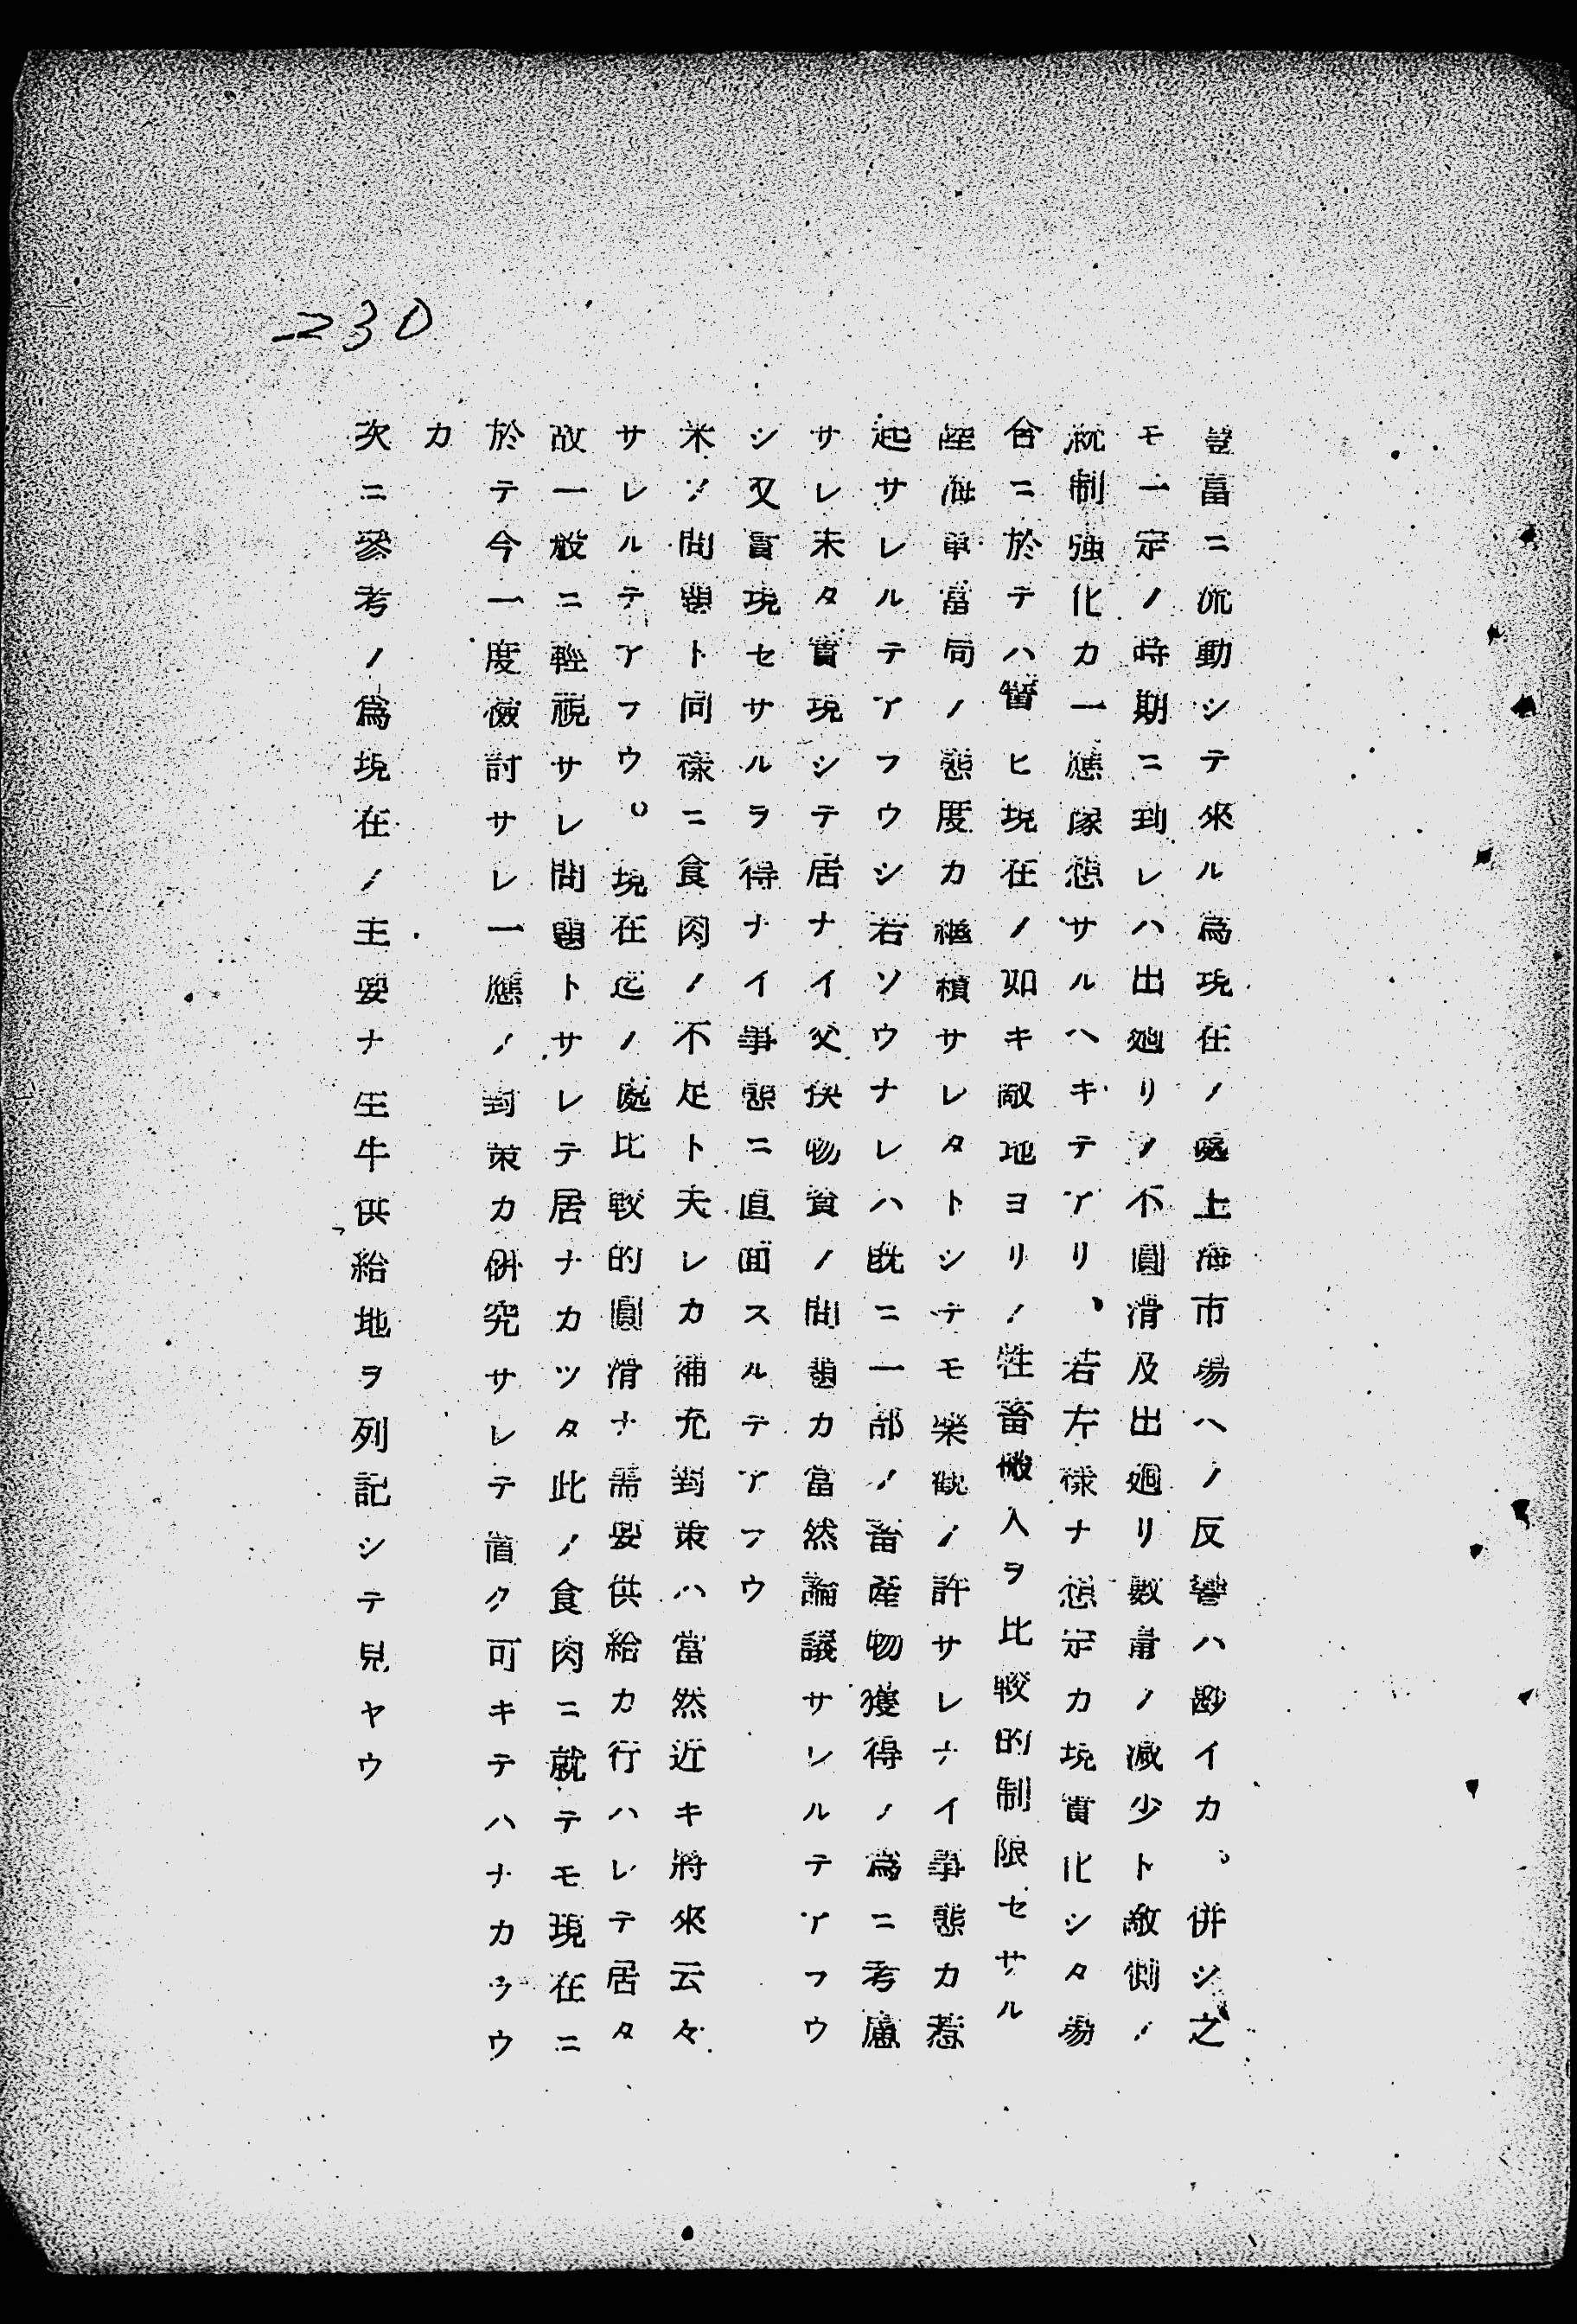 230
豊富ニ流動シテ來ル爲現在ノ處上海市場ヘノ反響ハ尠イカ。併シ之
モ一定ノ時期ニ到レハ出廻リノ不圓滑及出廻リ數量ノ減少ト敵側ノ
統制強化カ一應豫想サルヘキテアリ、若左様ナ想定カ現實化シタ場
合ニ於テハ譬ヒ現在ノ如キ敵地ヨリノ牲畜搬入ヲ比較的制限セサル
陸海軍當局ノ態度カ繼續サレタトシテモ樂觀ノ許サレナイ事態カ惹
起サレルテアフウシ若ソウナレハ既ニ一部ノ畜産物獲得ノ爲ニ考慮
サレ未タ實現シテ居ナイ交換物資ノ問題カ當然論議サレルテアフウ
シ又實現セサルヲ得ナイ事態ニ直面スルテアフウ
米ノ問題ト同樣ニ食肉ノ不足ト夫レカ補充對策ハ當然近キ將來云々
サレルテアフウ。現在迄ノ處比較的圓滑ナ需要供給カ行ハレテ居タ
故一般ニ輕視サレ問題トサレテ居ナカツタ此ノ食肉ニ就テモ現在ニ
於テ今一度檢討サレ一應ノ對策カ研究サレテ置ク可キテハナカラウ
カ
次ニ參考ノ爲現在ノ主要ナ生牛供給地ヲ列記シテ見ヤウ